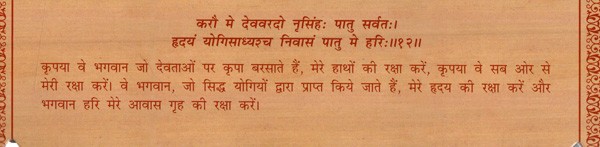 करौ मे देववरदो नृसिंहः पातु सर्वतः।
हृदयं योगिसाध्यश्च निवासं पातु मे हरिः॥१२॥
कृपया वे भगवान जो देवताओं पर कृपा बरसाते हैं, मेरे हाथों की रक्षा करें, कृपया वे सब ओर से
मेरी रक्षा करें। वे भगवान, जो सिद्ध योगियों द्वारा प्राप्त किये जाते हैं, मेरे हृदय की रक्षा करें और
भगवान हरि मेरे आवास गृह की रक्षा करें।